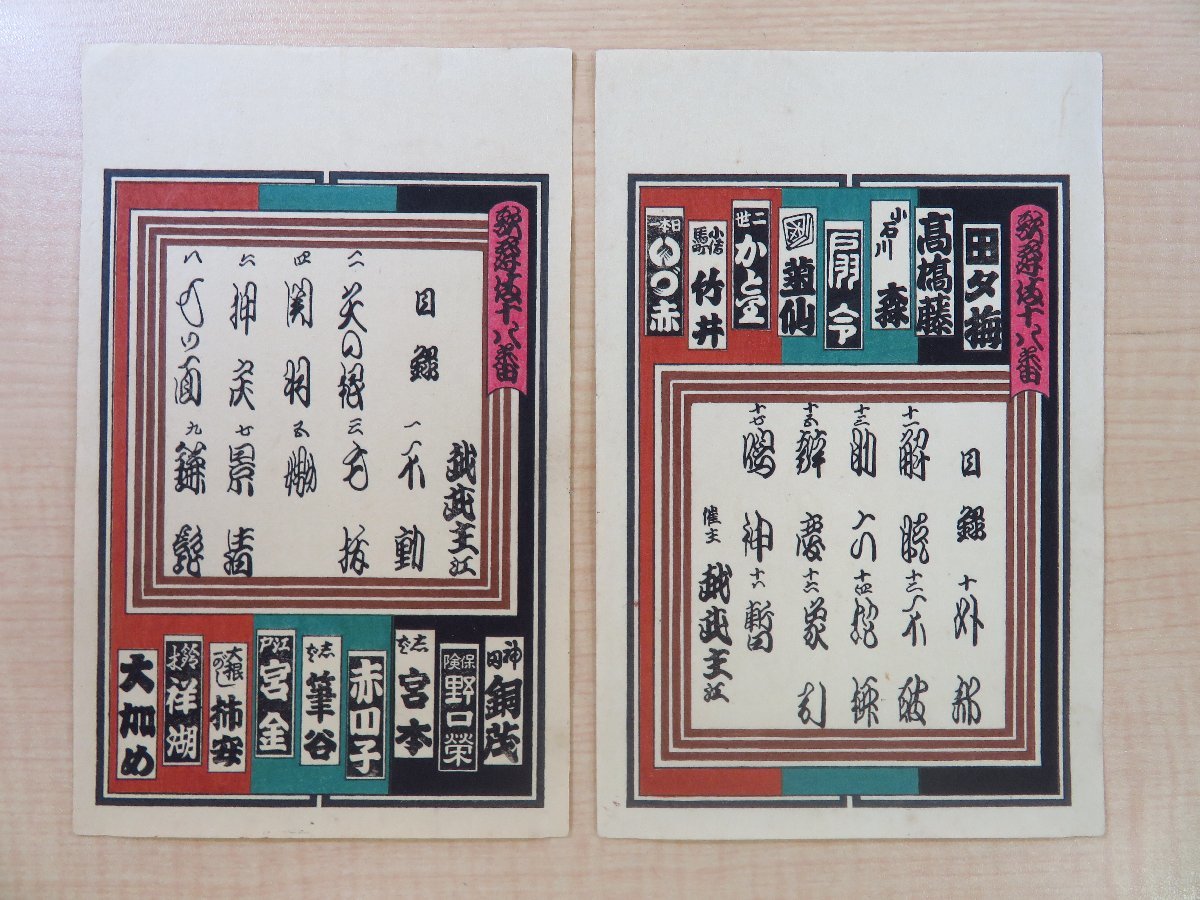 歌舞伎十八番
越武主江
目録 一 不動
二 矢の根 三 毛抜
四 関羽 五 嫐
六 押戻 七 景清
八 七つ面 九 鎌髭
神田 銅茂
保険 野口榮
宮本
赤四子
筆谷
江戸 宮金
大根 柿安
鈴木 祥湖
大加め
歌舞伎十八番
田夕梅
高橋藤
小石川 森
令
菊仙
二世 かと里
小伝馬町 竹井
いづ赤
目録 十 外郎
十一 解脱 十二 不破
十三 助六 十四 蛇柳
十五 辨慶 十六 象引
十七 鳴神 十八 暫
催主 越武主江